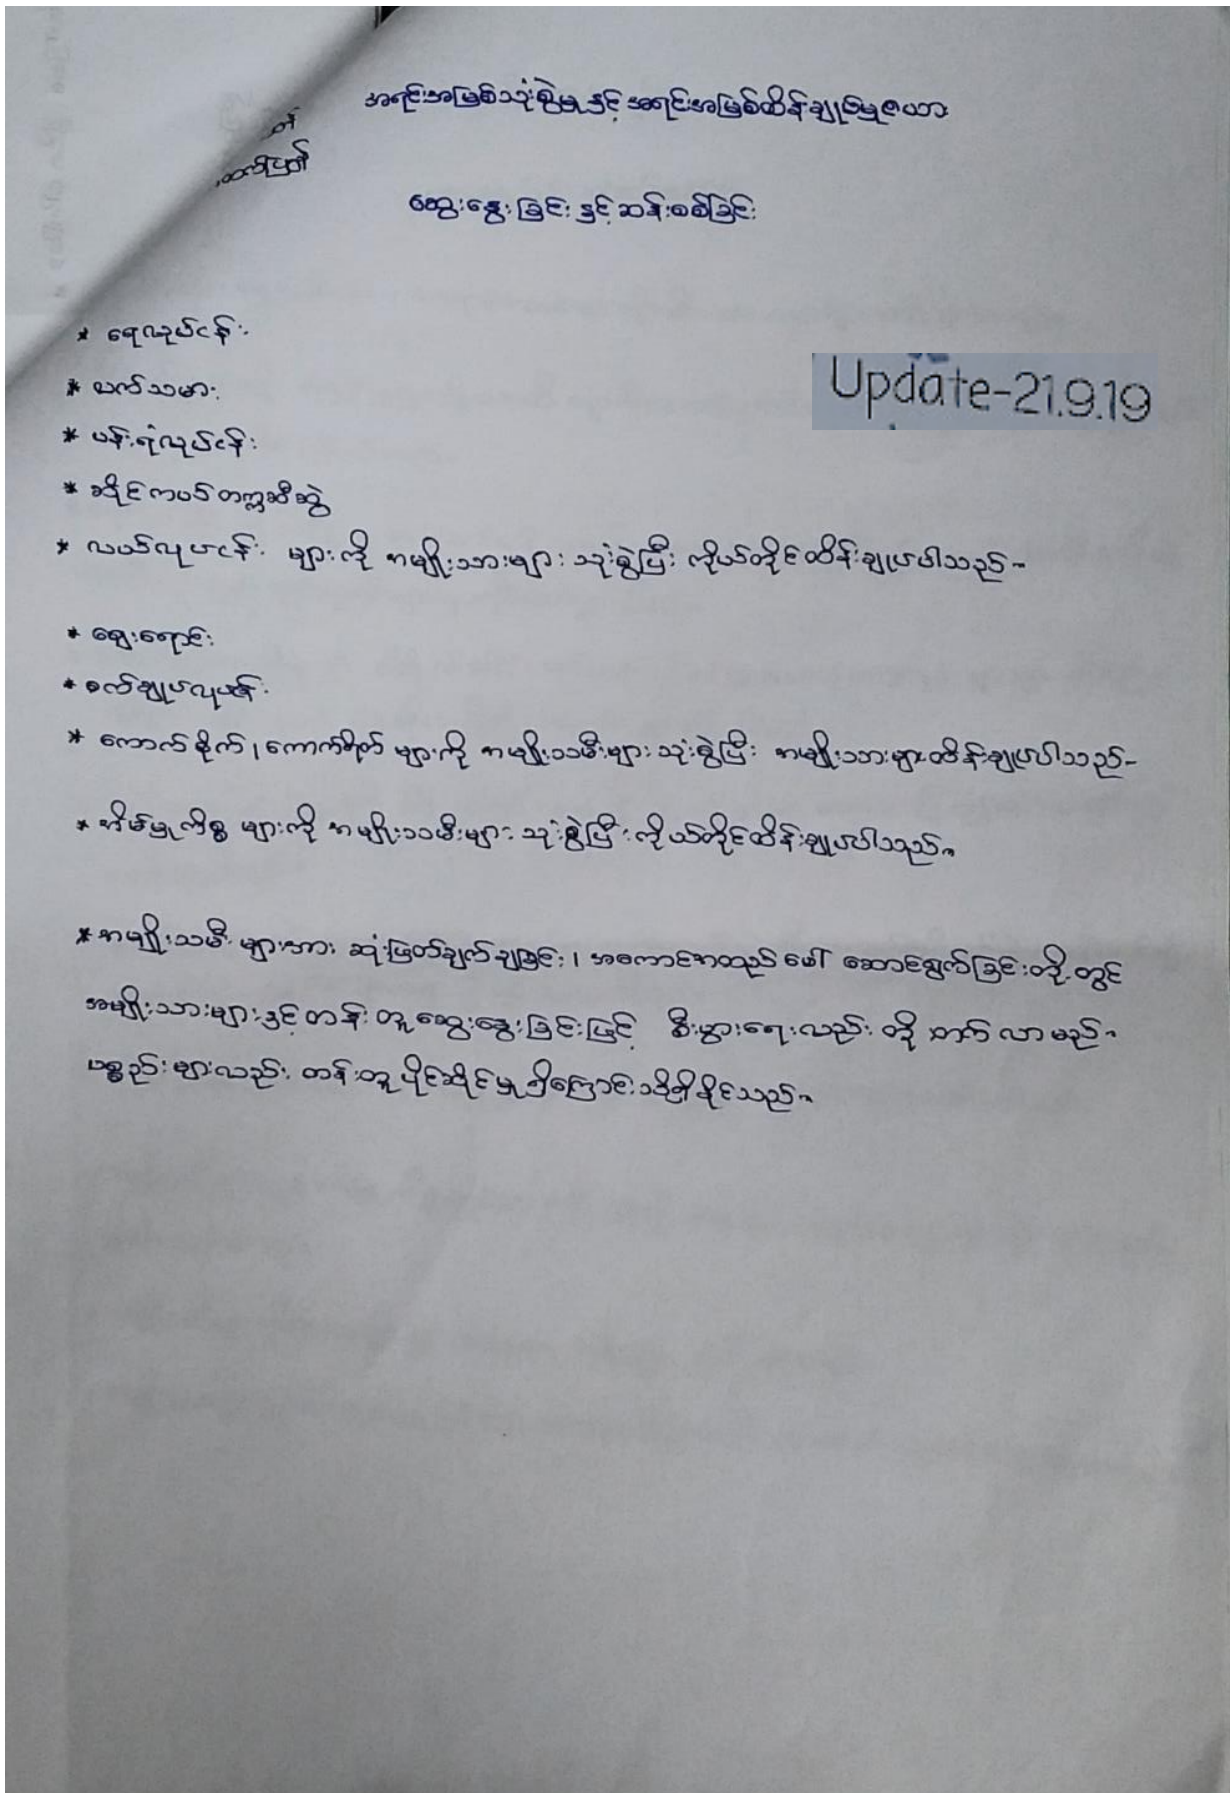 အရင်းအမြစ်သုံးစွဲမှုနှင့် အရင်းအမြစ်ထိန်းချုပ်မှုဇယား
ဆွေးနွေးခြင်းနှင့်ဆန်းစစ်ခြင်း
* ရေလုပ်ငန်း
Update-21.9.19
* လက်သမား
* ပန်းရံလုပ်ငန်း
* ဆိုင်ကယ်တက္ကဆီဆွဲ
* လယ်လုပ်ငန်း များကို အမျိုးသားများ သုံးစွဲပြီး ကိုယ်တိုင်ထိန်းချုပ်ပါသည်။
* ဈေးရောင်း
* စက်ချုပ်လုပ်ငန်း
* ကောက်စိုက်၊ ကောက်ရိတ် များကို အမျိုးသမီးများ သုံးစွဲပြီး အမျိုးသားများထိန်းချုပ်ပါသည်။
* အိမ်မှုကိစ္စ များကို အမျိုးသမီးများ သုံးစွဲပြီး ကိုယ်တိုင်ထိန်းချုပ်ပါသည်။
* အမျိုးသမီး များအား ဆုံးဖြတ်ချက်ချခြင်း၊ အကောင်အထည်ဖော် ဆောင်ရွက်ခြင်းတို့တွင်
အမျိုးသားများနှင့်တန်းတူဆွေးနွေးခြင်းဖြင့် စီးပွားရေးလည်း တိုးတက်လာမည်။
ပစ္စည်းများလည်း တန်းတူပိုင်ဆိုင်မှုရှိကြောင်း သိရှိနိုင်သည်။